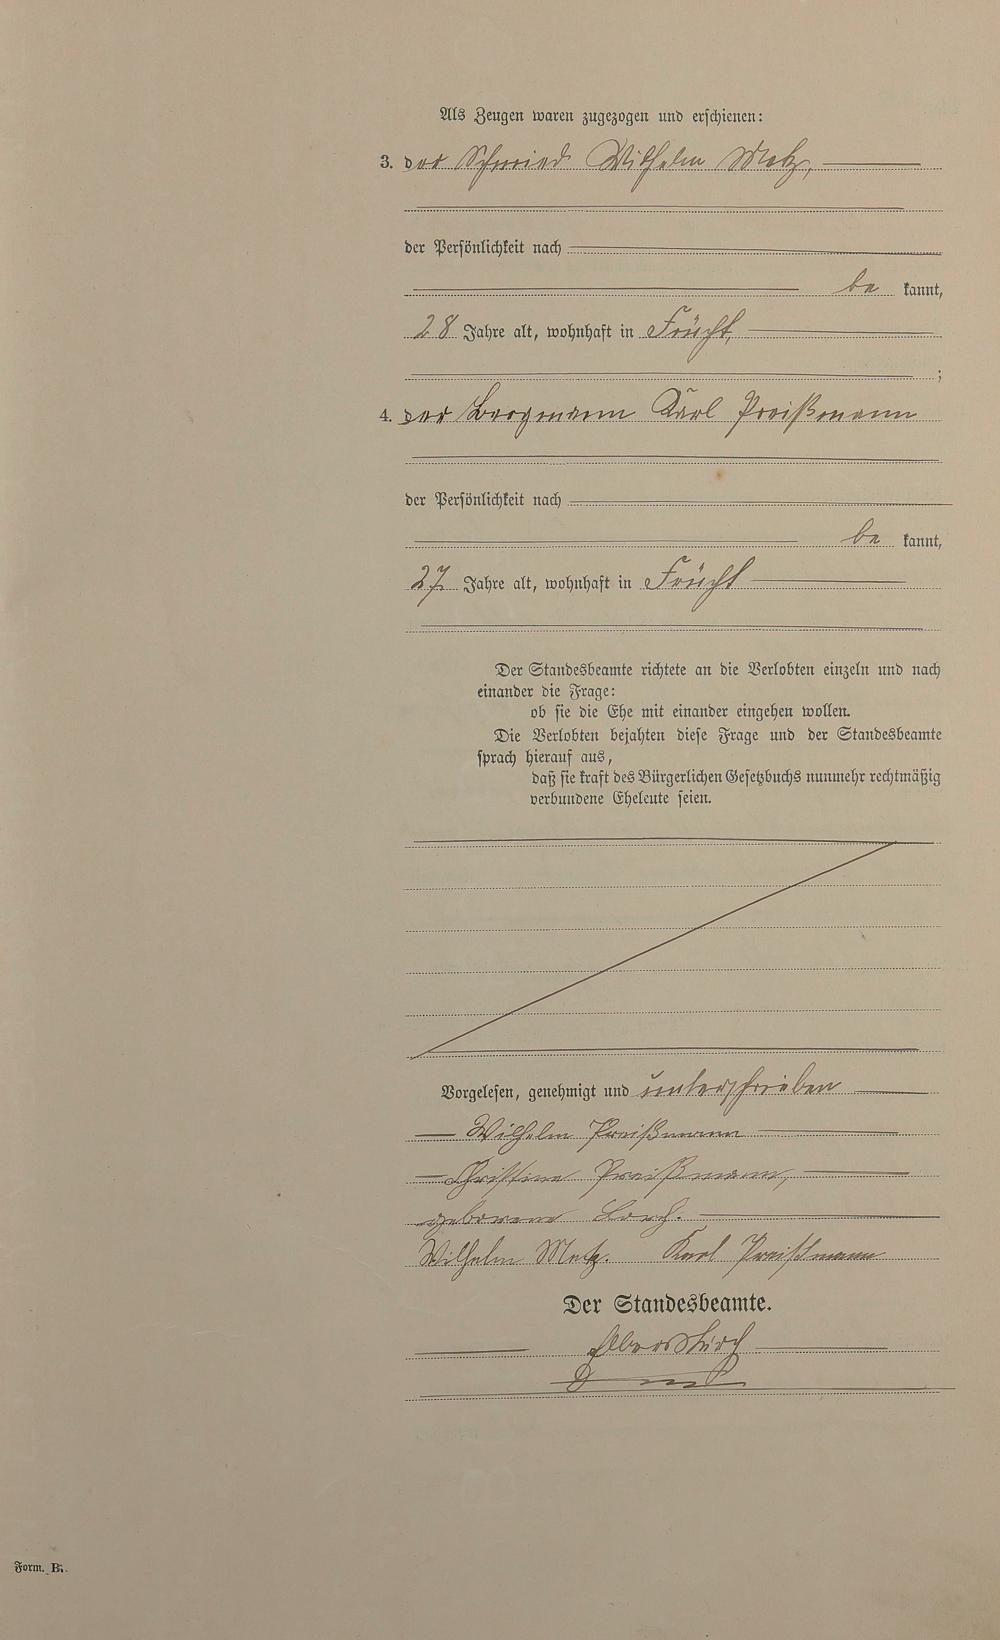 Als Zeugen waren zugezogen und erschienen:
3. der Schmied Wilhelm Metz,
der Persönlichkeit nach
be kannt,
28 Jahre alt, wohnhaft in Frücht,
;
4. der Bergmann Karl Preißmann
der Persönlichkeit nach
be kannt,
27 Jahre alt, wohnhaft in Frücht
Der Standesbeamte richtete an die Verlobten einzeln und nach
einander die Frage:
ob sie die Ehe mit einander eingehen wollen.
Die Verlobten bejahten diese Frage und der Standesbeamte
sprach hierauf aus,
daß sie kraft des Bürgerlichen Gesetzbuchs nunmehr rechtmäßig
verbundene Eheleute seien.
Vorgelesen, genehmigt und unterschrieben
Wilhelm Preißmann
Christine Preißmann,
geborene Lorch.
Wilhelm Metz. Karl Preißmann
Der Standesbeamte.
Elberskirch
Form. B.